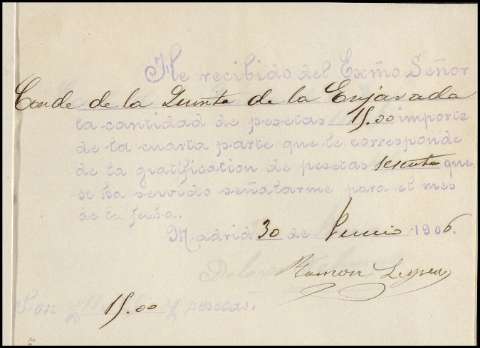 He recibido del Exmo Señor
Conde de la Quinta de la Enjarada
la cantidad de pesetas 15.00 importe
de la cuarta parte que le corresponde
de la gratificacion de pesetas sesenta que
se ha servido señalarme para el mes
de la fecha.
Madrid 30 de Junio 1906.
Ramon
Son 15.00 pesetas.